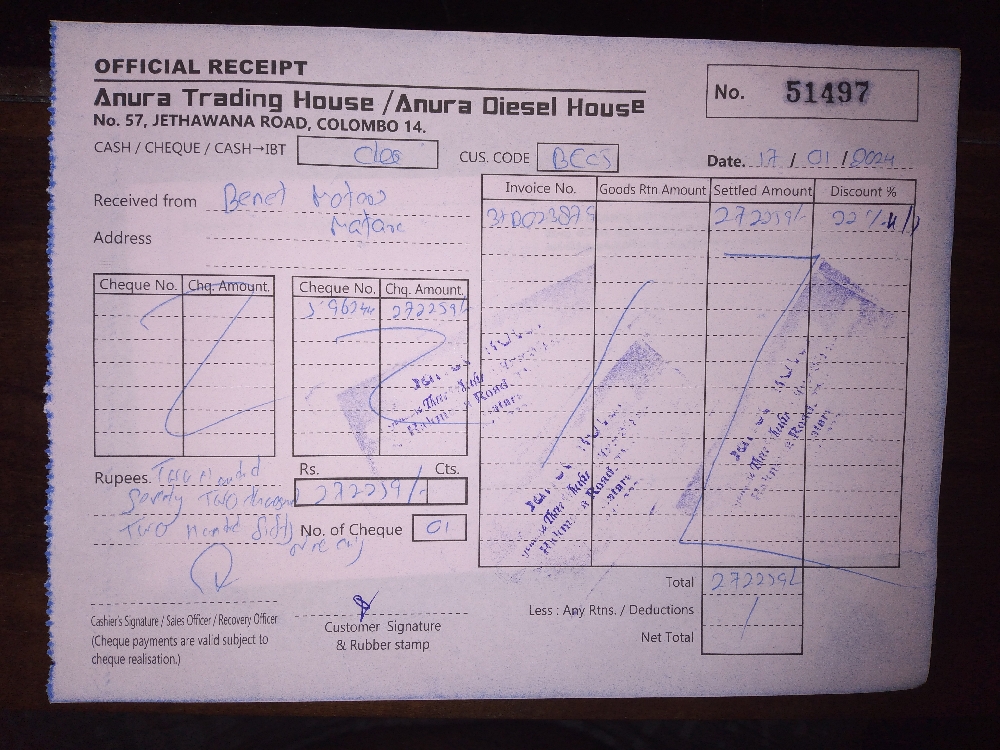 OFFICIAL RECEIPT
Anura Trading House / Anura Diesel House
No. 57, JETHAWANA ROAD, COLOMBO 14.
No. 51497
CASH / CHEQUE / CASH→IBT
CUS. CODE
Date. 17 / 01 / 2024
Received from Benet Motors
Matara
Address
Invoice No. Goods Rtn Amount Settled Amount Discount %
272259/- 22 %
Cheque No. Chq. Amount. Cheque No. Chq. Amount.
272259/-
Rupees. Two Hundred
Seventy Two thousand
Two Hundred Fifty
Nine only
Rs. Cts.
272259/-
No. of Cheque 01
Total 272259/-
Less : Any Rtns. / Deductions
Net Total
Cashier's Signature / Sales Officer / Recovery Officer
(Cheque payments are valid subject to
cheque realisation.)
Customer Signature
& Rubber stamp